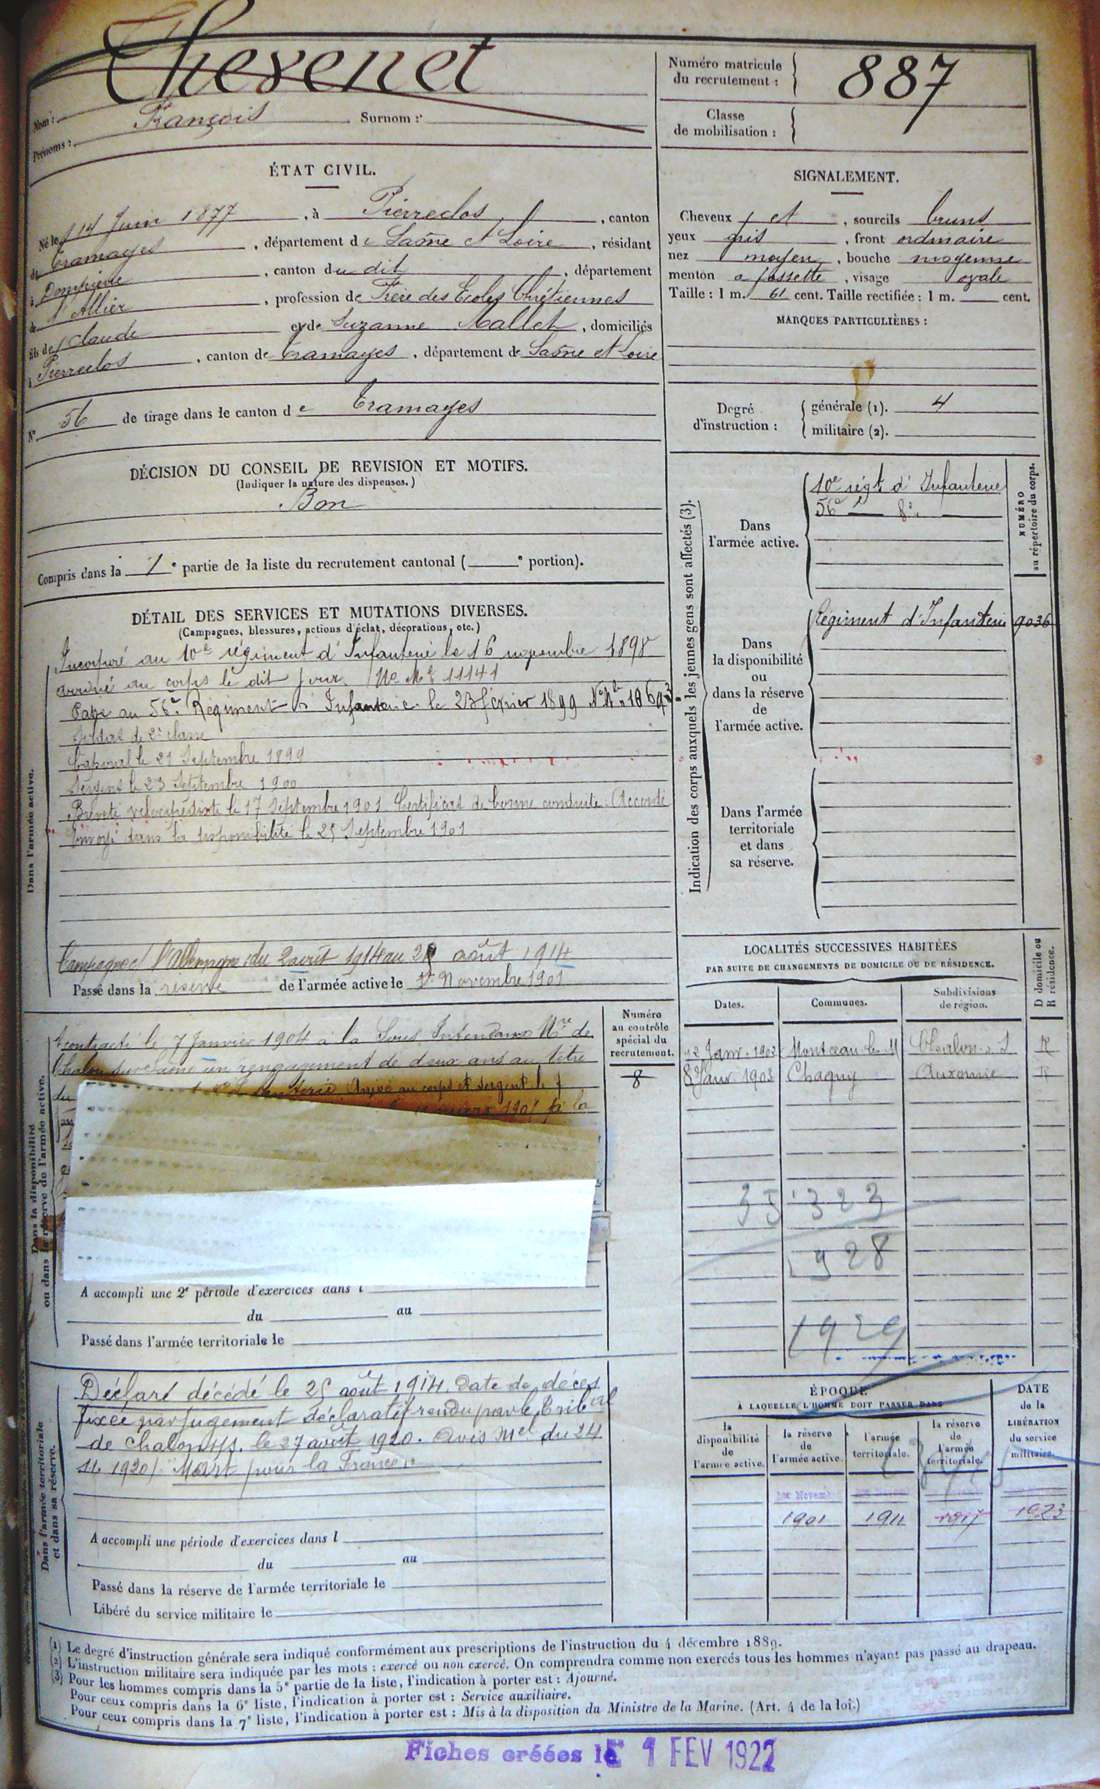 Nom : Chevenet
Prénoms : François Surnom :
Numéro matricule du recrutement : 887
Classe de mobilisation :
ÉTAT CIVIL.
Né le 14 Juin 1877, à Pierreclos, canton
de Tramayes, département de Saône et Loire, résidant
à Dompierre, canton du dit, département
de l'Allier, profession de Frère des Ecoles Chrétiennes
fils de Claude et de Suzanne Mallet, domiciliés
à Pierreclos, canton de Tramayes, département de Saône et Loire
N° 56 de tirage dans le canton de Tramayes
SIGNALEMENT.
Cheveux et, sourcils bruns
yeux gris, front ordinaire
nez moyen, bouche moyenne
menton à fossette, visage ovale
Taille : 1 m. 61 cent. Taille rectifiée : 1 m. cent.
MARQUES PARTICULIÈRES :
Degré d'instruction : générale (1). 4
militaire (2).
DÉCISION DU CONSEIL DE REVISION ET MOTIFS.
(Indiquer la nature des dispenses.)
Bon
Compris dans la 1e partie de la liste du recrutement cantonal ( e portion).
DÉTAIL DES SERVICES ET MUTATIONS DIVERSES.
(Campagnes, blessures, actions d'éclat, décorations, etc.)
Dans l'armée active.
Incorporé au 10e régiment d'Infanterie le 16 novembre 1898
arrivé au corps le dit jour No Mle 11141
Passé au 56e Régiment d'Infanterie le 23 février 1899 No Mle
Soldat de 2e classe
Caporal le 21 Septembre 1899
Sergent le 23 Septembre 1900
Breveté vélocipédiste le 17 Septembre 1901 Certificat de bonne conduite : Accordé
Envoyé dans la disponibilité le 25 Septembre 1901
Campagne c/ l'Allemagne du 2 août 1914 au 25 août 1914
Passé dans la réserve de l'armée active le 1er Novembre 1901
Indication des corps auxquels les jeunes gens sont affectés (3).
NUMÉRO au répertoire du corps.
Dans l'armée active.
10e régt d'Infanterie
56e
Dans la disponibilité ou dans la réserve de l'armée active.
Régiment d'Infanterie 9036
Dans l'armée territoriale et dans sa réserve.
LOCALITÉS SUCCESSIVES HABITÉES
PAR SUITE DE CHANGEMENTS DE DOMICILE OU DE RÉSIDENCE.
D domicile ou R résidence.
Dates. Communes. Subdivisions de région.
Janv. 1902 Montceau-les-M Chalon s. S R
8 Janv 1903 Chagny Auxonne R
35 323
928
1929
Dans la disponibilité ou dans la réserve de l'armée active.
Numéro au contrôle spécial du recrutement.
8
A contracté le 7 Janvier 1904 à la Sous Intendance Mre de
Chalon sur Saône un rengagement de deux ans au titre
du
Arrivé au corps et sergent le 7
A accompli une 2e période d'exercices dans l
du au
Passé dans l'armée territoriale le
Dans l'armée territoriale et dans sa réserve.
Déclaré décédé le 25 août 1914. Date de décès
fixée par jugement déclaratif rendu par le tribunal
de Chalon s/s. le 27 août 1920. Avis mel du 24
11 1920. Mort pour la France
A accompli une période d'exercices dans l
du au
Passé dans la réserve de l'armée territoriale le
Libéré du service militaire le
ÉPOQUE
A LAQUELLE L'HOMME DOIT PASSER DANS
la disponibilité de l'armée active. la réserve de l'armée active. l'armée territoriale. la réserve de l'armée territoriale.
DATE de la LIBÉRATION du service militaire.
1er Novembre
1901 1911 1917 1923
(1) Le degré d'instruction générale sera indiqué conformément aux prescriptions de l'instruction du 4 décembre 1889.
(2) L'instruction militaire sera indiquée par les mots : exercé ou non exercé. On comprendra comme non exercés tous les hommes n'ayant pas passé au drapeau.
(3) Pour les hommes compris dans la 5e partie de la liste, l'indication à porter est : Ajourné.
Pour ceux compris dans la 6e liste, l'indication à porter est : Service auxiliaire.
Pour ceux compris dans la 7e liste, l'indication à porter est : Mis à la disposition du Ministre de la Marine. (Art. 4 de la loi.)
Fiches créées le 1 FEV 1922